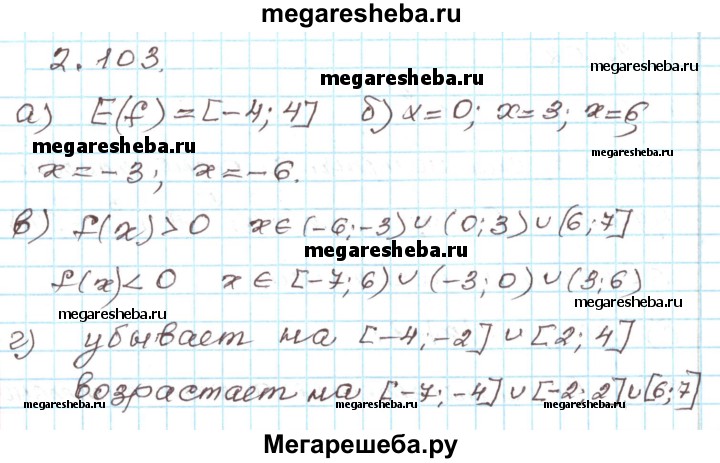 megaresheba.ru
2.103.
megaresheba.ru
megaresheba.ru
а) E(f)=[-4; 4] б) x=0; x=3; x=6;
megaresheba.ru
megaresheba.ru
x=-3; x=-6.
в) f(x)>0 x∈(-6;-3)∪(0;3)∪[6;7]
megaresheba.ru
f(x)<0 x∈[-7;6)∪(-3;0)∪(3;6)
megaresheba.ru
megaresheba.ru
г) убывает на [-4;-2]∪[2;4]
возрастает на [-7;-4]∪[-2;2]∪[6;7]
megaresheba.ru
megaresheba.ru
megaresheba.ru
Мегарешеба.ру